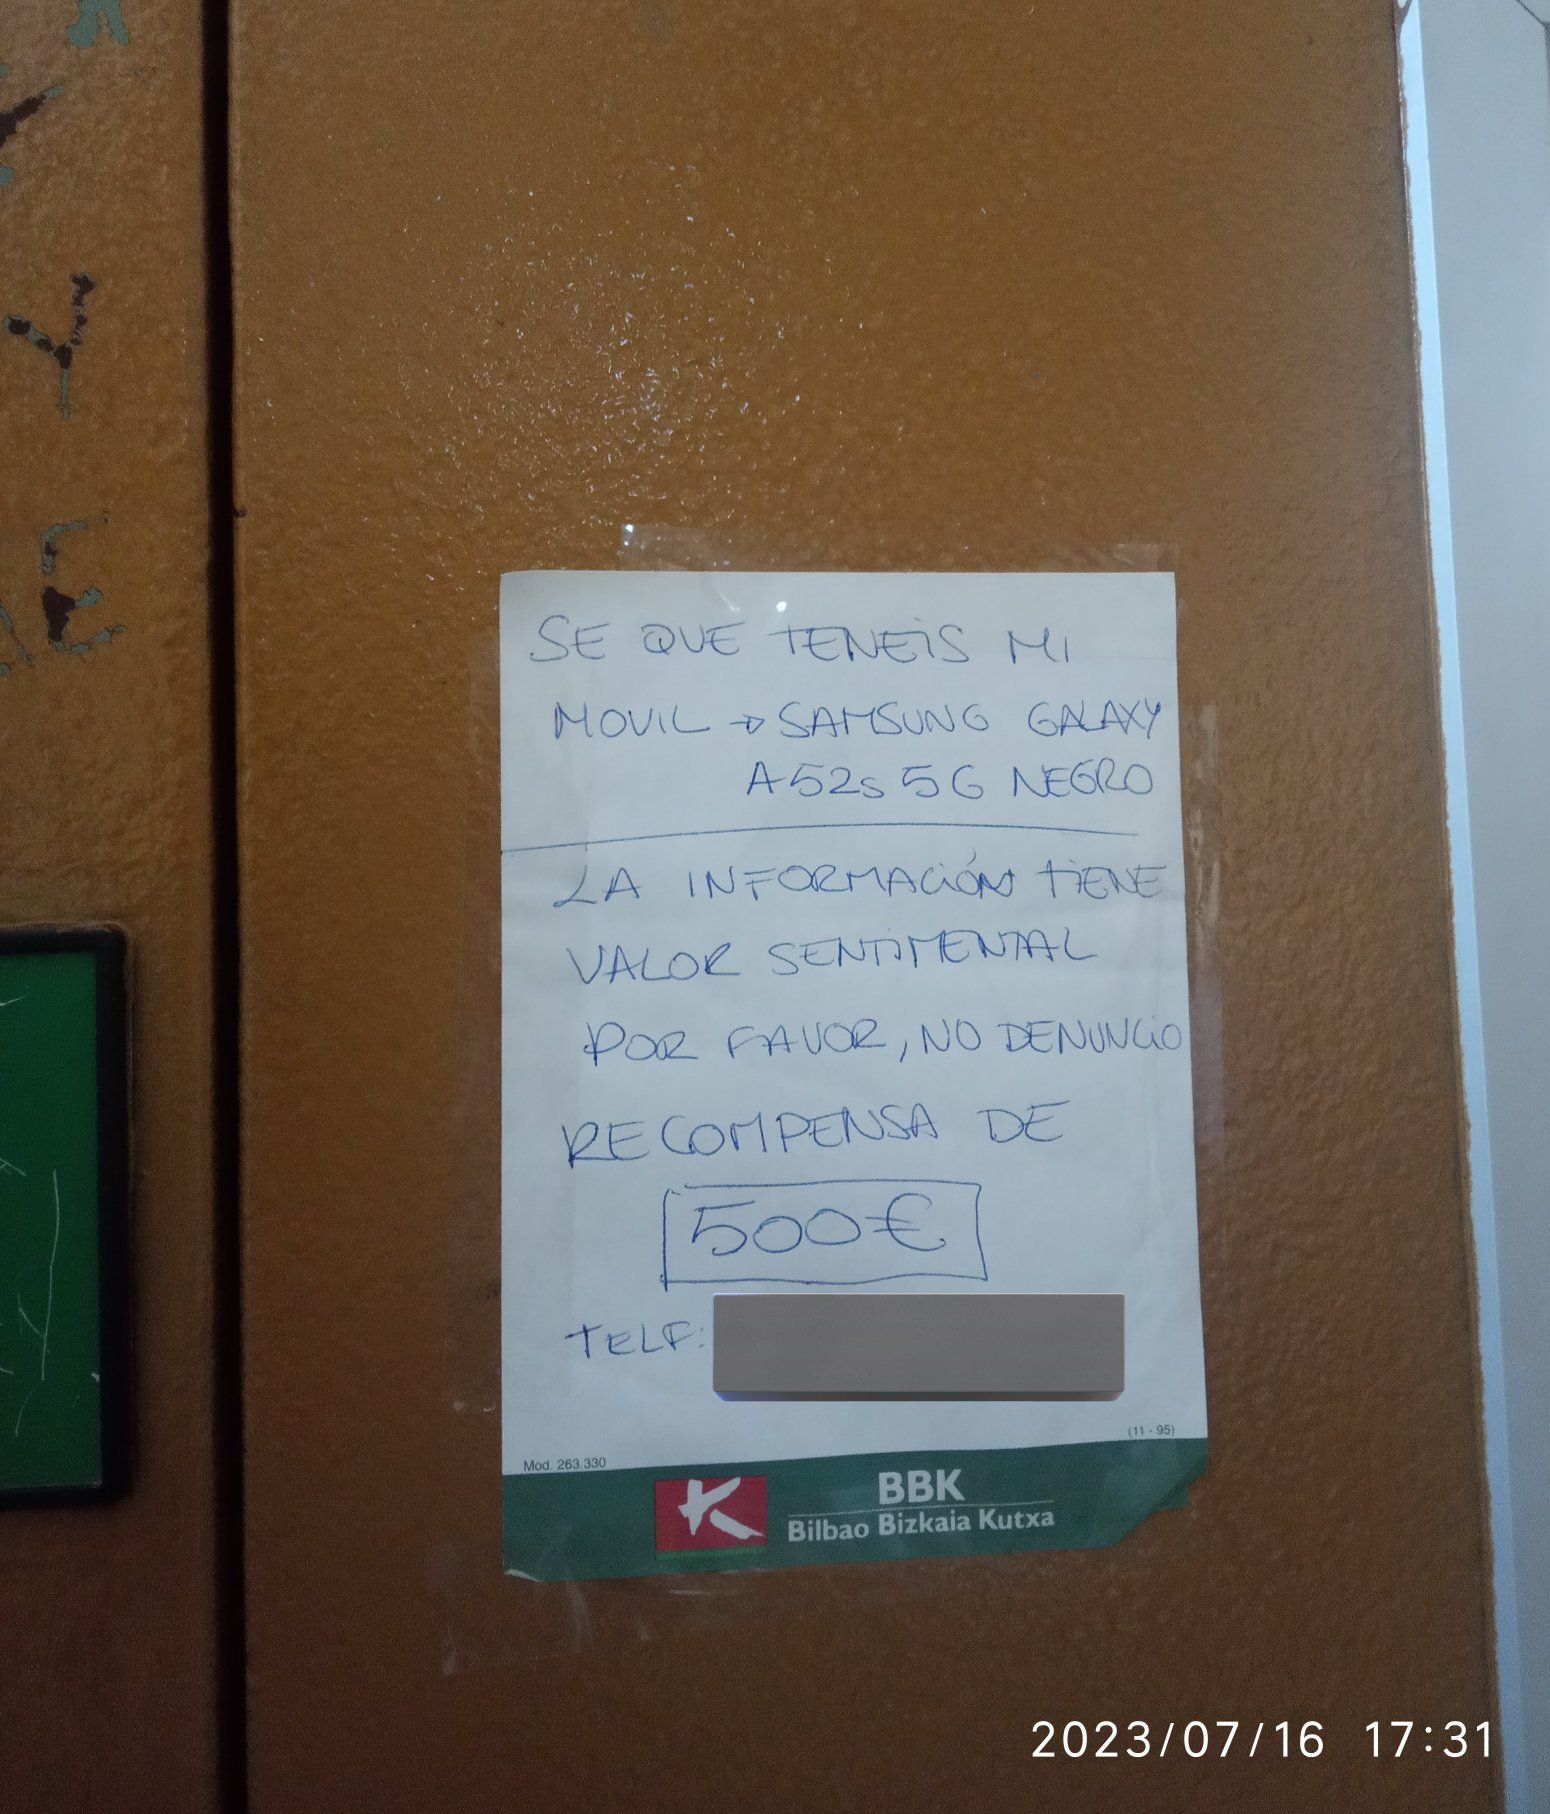 SE QUE TENEIS MI
MOVIL → SAMSUNG GALAXY
A52s 5G NEGRO
LA INFORMACIÓN TIENE
VALOR SENTIMENTAL
POR FAVOR, NO DENUNCIO
RECOMPENSA DE
500€
TELF:
(11 - 95)
Mod. 263.330
K
BBK
Bilbao Bizkaia Kutxa
2023/07/16 17:31